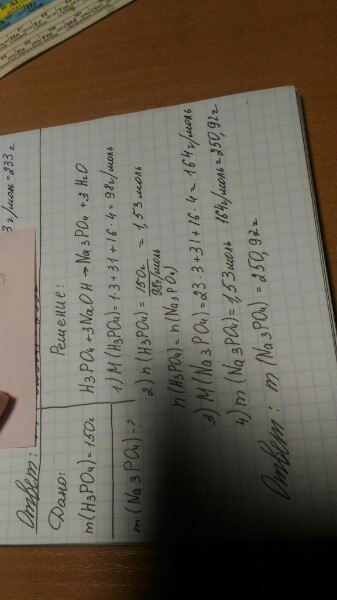 3 г/моль = 233 г
Ответ:
Дано:
m(H3PO4) = 150г
m(Na3PO4) - ?
Решение:
H3PO4 + 3NaOH → Na3PO4 + 3H2O
1) M(H3PO4) = 1·3 + 31 + 16·4 = 98 г/моль
2) n(H3PO4) = 150г / 98г/моль = 1,53 моль
n(H3PO4) = n(Na3PO4)
3) M(Na3PO4) = 23·3 + 31 + 16·4 = 164 г/моль
4) m(Na3PO4) = 1,53 моль · 164г/моль = 250,92г
Ответ: m(Na3PO4) = 250,92г